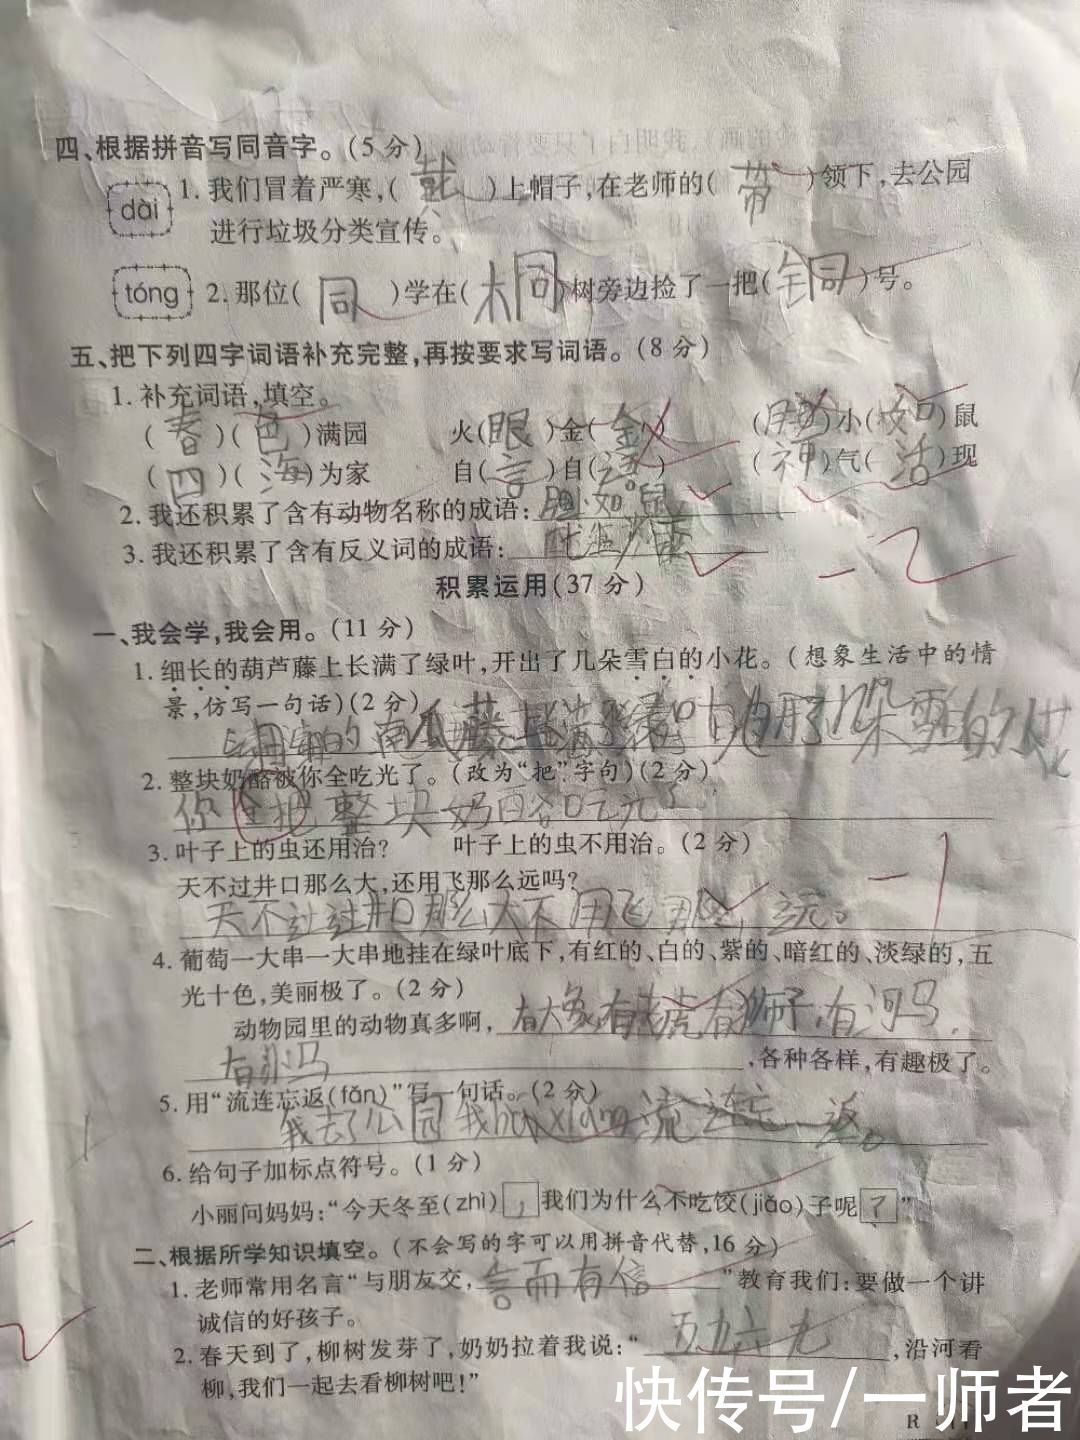 四、根据拼音写同音字。(5 分)
dài 1. 我们冒着严寒,( 戴 )上帽子,在老师的( 带 )领下,去公园
进行垃圾分类宣传。
tóng 2. 那位( 同 )学在( 桐 )树旁边捡了一把( 铜 )号。
五、把下列四字词语补充完整,再按要求写词语。(8 分)
1. 补充词语,填空。
( 春 )( 色 )满园 火( 眼 )金( 金 ) ( 胆 )小( 如 )鼠
( 四 )( 海 )为家 自( 言 )自( 语 ) ( 神 )气( 活 )现
2. 我还积累了含有动物名称的成语: 胆小如鼠
3. 我还积累了含有反义词的成语:
积累运用(37 分)
一、我会学,我会用。(11 分)
1. 细长的葫芦藤上长满了绿叶,开出了几朵雪白的小花。(想象生活中的情
景,仿写一句话)(2 分)
的南瓜藤上长满了绿叶 开了几朵雪白的小花
2. 整块奶酪被你全吃光了。(改为“把”字句)(2 分)
你全把整块奶酪吃光了
3. 叶子上的虫还用治? 叶子上的虫不用治。(2 分)
天不过井口那么大,还用飞那么远吗?
天不过过井口那么大不用飞那么远。
4. 葡萄一大串一大串地挂在绿叶底下,有红的、白的、紫的、暗红的、淡绿的,五
光十色,美丽极了。(2 分)
动物园里的动物真多啊, 有大象,有老虎有狮子,有河马,
有 马 ,各种各样,有趣极了。
5. 用“流连忘返(fǎn)”写一句话。(2 分)
我去了公园我 流连忘返。
6. 给句子加标点符号。(1 分)
小丽问妈妈:“今天冬至(zhì) , 我们为什么不吃饺(jiǎo)子呢 ? ”
二、根据所学知识填空。(不会写的字可以用拼音代替,16 分)
1. 老师常用名言“与朋友交, 言而有信 ”教育我们:要做一个讲
诚信的好孩子。
2. 春天到了,柳树发芽了,奶奶拉着我说:“ 五九六九 ,沿河看
柳,我们一起去看柳树吧!”
快传号/一师者